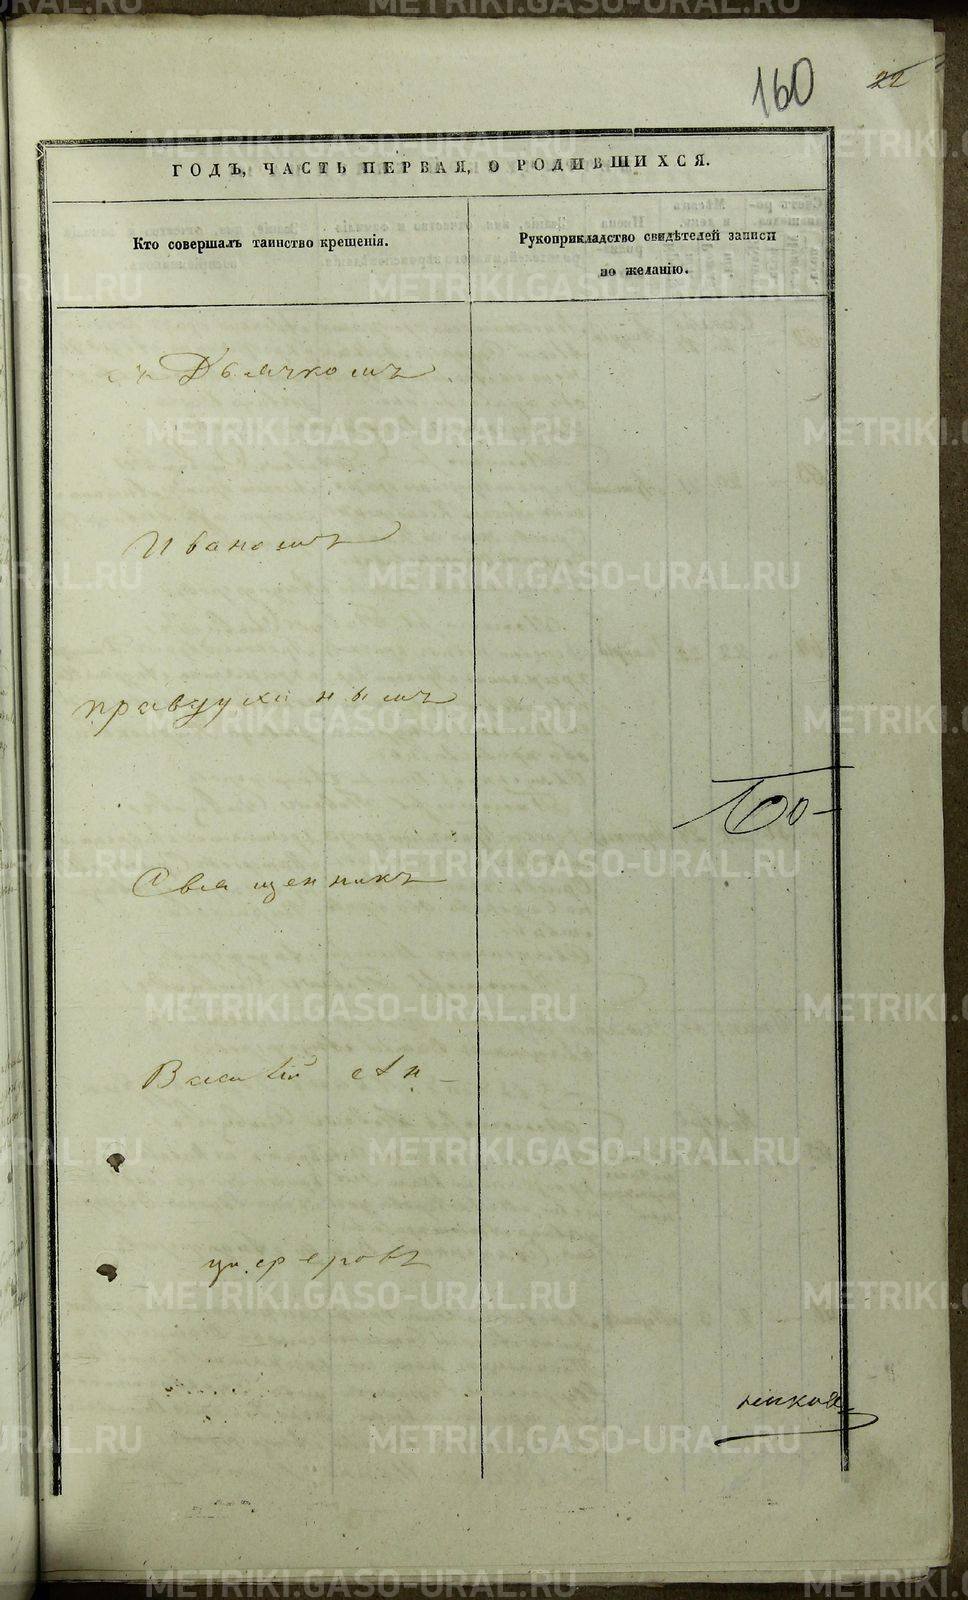 160
22
ГОДЪ, ЧАСТЬ ПЕРВАЯ, О РОДИВШИХСЯ.
Кто совершалъ таинство крещенія.
Рукоприкладство свидѣтелей записи
по желанію.
съ Дьячкомъ
Иваномъ
правдухинымъ
Священникъ
Василій
METRIKI.GASO-URAL.RU